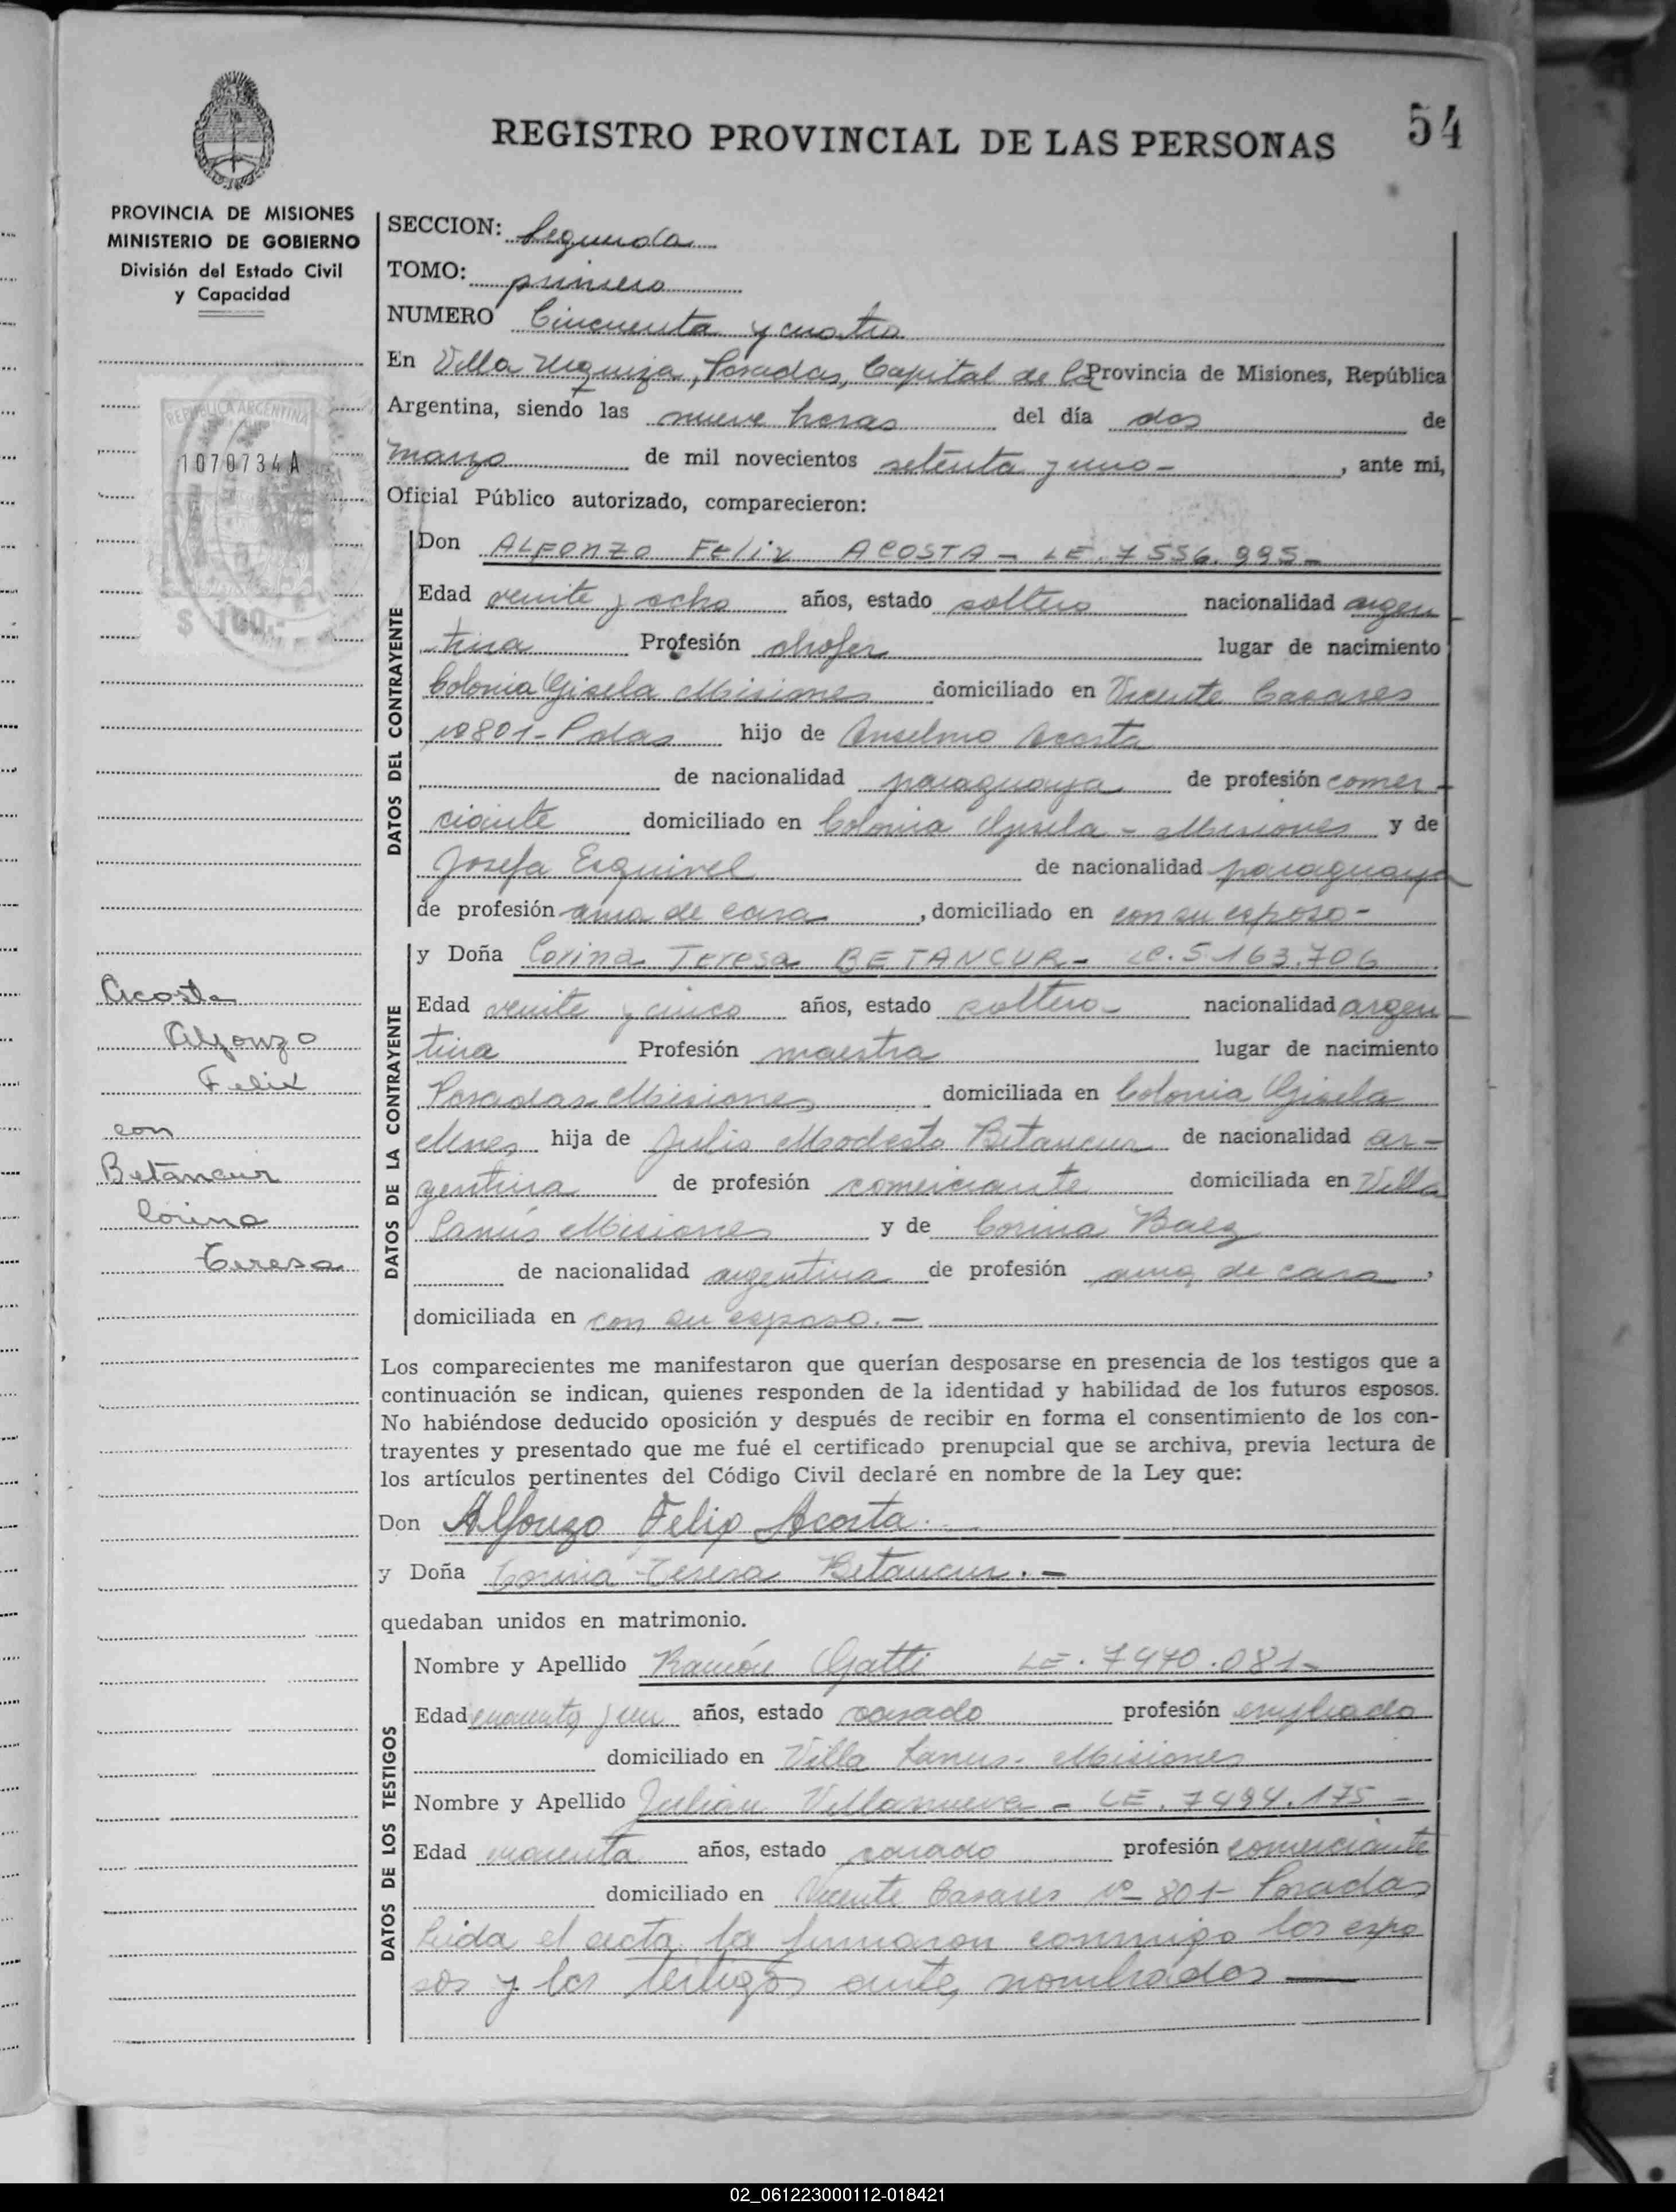 54
REGISTRO PROVINCIAL DE LAS PERSONAS
PROVINCIA DE MISIONES
MINISTERIO DE GOBIERNO
División del Estado Civil
y Capacidad
REPUBLICA ARGENTINA
1070734 A
$ 100.-
Acosta
Alfonzo
Felix
con
Betancur
Corina
Teresa
SECCION: Segunda
TOMO: primero
NUMERO Cincuenta y cuatro
En Villa Urquiza, Posadas, Capital de la Provincia de Misiones, República
Argentina, siendo las nueve horas del día dos de
marzo de mil novecientos setenta y uno- , ante mi,
Oficial Público autorizado, comparecieron:
DATOS DEL CONTRAYENTE
Don ALFONZO Felix ACOSTA - LE. 7556.995-
Edad veinte y ocho años, estado soltero nacionalidad argen
tina Profesión chofer lugar de nacimiento
Colonia Gisela Misiones domiciliado en Vicente Casares
Nº801- Pdas hijo de Anselmo Acosta
de nacionalidad paraguaya de profesión comer-
ciante domiciliado en Colonia Gisela - Misiones y de
Josefa Esquivel de nacionalidad paraguaya
de profesión ama de casa , domiciliado en con su esposo-
DATOS DE LA CONTRAYENTE
y Doña Corina Teresa BETANCUR- LC. 5.163.706
Edad veinte y cinco años, estado soltero- nacionalidad argen
tina Profesión maestra lugar de nacimiento
Posadas Misiones domiciliada en Colonia Gisela
Mnes hija de Julio Modesto Betancur de nacionalidad ar-
gentina de profesión comerciante domiciliada en Villa
Lanús Misiones y de Corina Baez
de nacionalidad argentina de profesión ama de casa ,
domiciliada en con su esposo.-
Los comparecientes me manifestaron que querían desposarse en presencia de los testigos que a
continuación se indican, quienes responden de la identidad y habilidad de los futuros esposos.
No habiéndose deducido oposición y después de recibir en forma el consentimiento de los con-
trayentes y presentado que me fué el certificado prenupcial que se archiva, previa lectura de
los artículos pertinentes del Código Civil declaré en nombre de la Ley que:
Don Alfonzo Felix Acosta.
y Doña Corina Teresa Betancur.-
quedaban unidos en matrimonio.
DATOS DE LOS TESTIGOS
Nombre y Apellido Ramón Gatti LE. 7470.081-
Edad cuarenta y un años, estado casado profesión empleado
domiciliado en Villa Lanus- Misiones
Nombre y Apellido Julián Villanueva - LE. 7494.175-
Edad cuarenta años, estado casado profesión comerciante
domiciliado en Vicente Casares Nº 801- Posadas
Leida el acta la firmaron conmigo los espo
sos y los testigos ante nombrados
02_061223000112-018421